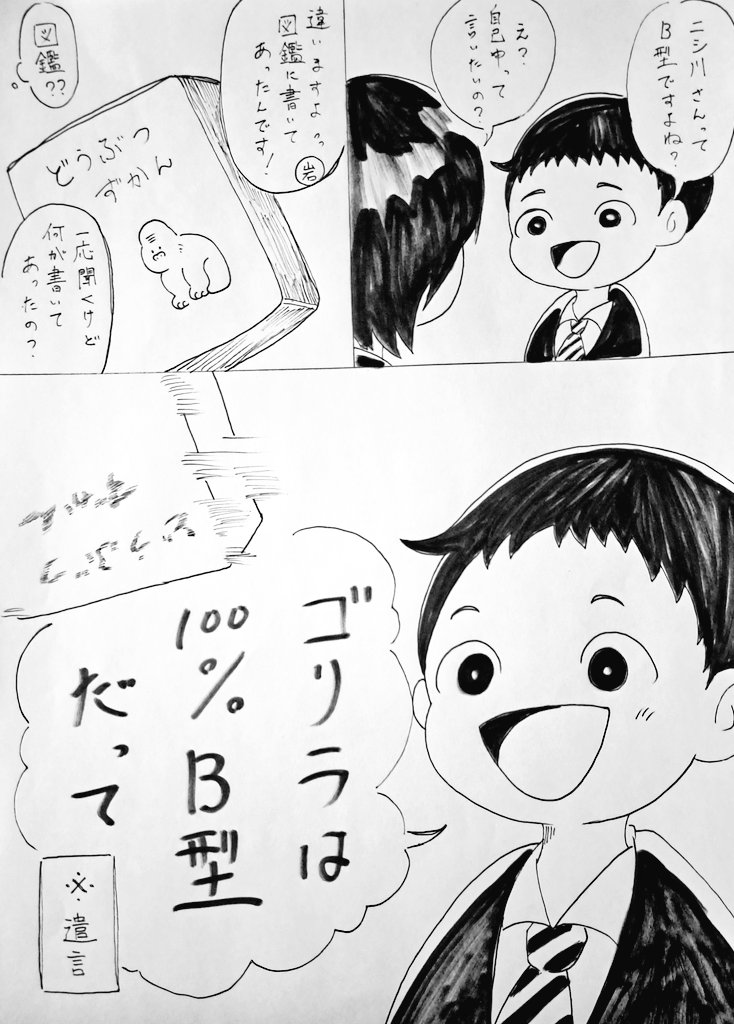 ニシ川さんって
B型ですよね?
え?
自己中って
言いたいの?
違いますよっ
図鑑に書いて
あったんです!
岩
図
鑑??
どうぶつ
ずかん
一応聞くけど
何が書いて
あったの?
ゴリラは
100%B型
だって
※遺言